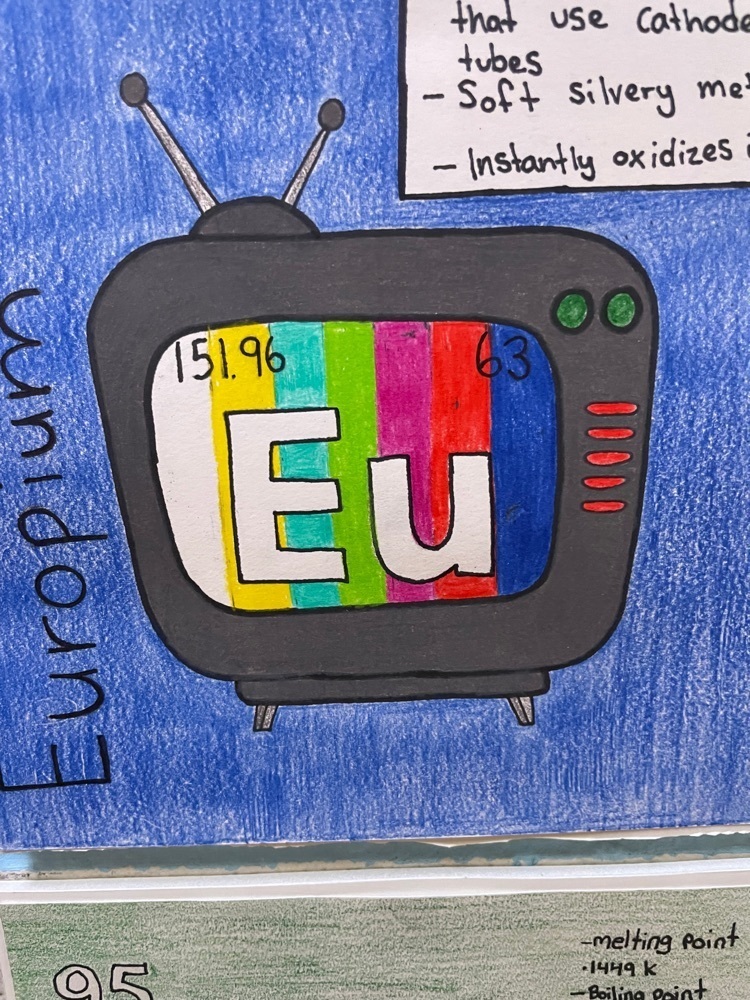 that use Cathode
tubes
- Soft silvery
- Instantly oxidizes
Europium
151.96
63
Eu
95
-melting point
·1449 K
-Boiling point